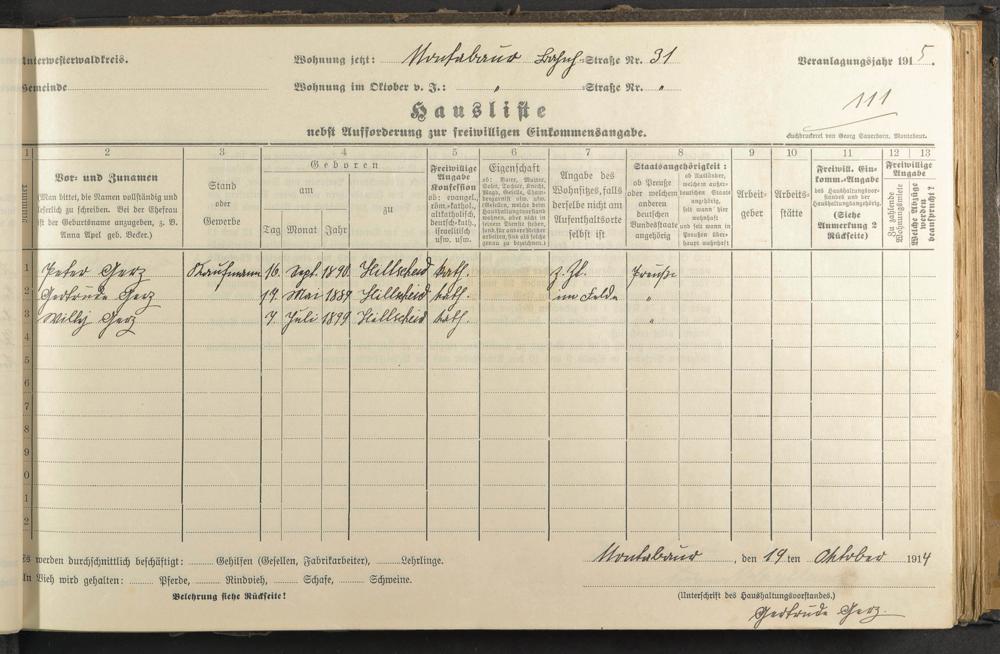 Unterwesterwaldkreis.
Wohnung jetzt: Montabaur Bahnh-Straße Nr. 31
Veranlagungsjahr 1915.
Gemeinde
Wohnung im Oktober v. J.: " -Straße Nr. "
111
Hausliste
nebst Aufforderung zur freiwilligen Einkommensangabe.
Buchdruckerei von Georg Sauerborn, Montabaur.
1 2 3 4 5 6 7 8 9 10 11 12 13
Nummer
Vor- und Zunamen
(Man bittet, die Namen vollständig und
leserlich zu schreiben. Bei der Ehefrau
ist der Geburtsname anzugeben, z. B.
Anna Apel geb. Becker.)
Stand
oder
Gewerbe
Geboren
am
zu
Tag Monat Jahr
Freiwillige
Angabe
Konfession
ob: evangel.,
röm.-kathol.,
altkatholisch,
deutsch-kath.,
israelitisch
usw. usw.
Eigenschaft
ob: Vater, Mutter,
Sohn, Tochter, Knecht,
Magd, Geselle,
Angabe des
Wohnsitzes, falls
derselbe nicht am
Aufenthaltsorte
selbst ist
Staatsangehörigkeit:
ob Preuße
oder welchem
anderen
deutschen
Bundesstaate
angehörig
ob Ausländer,
welchem außer-
deutschen Staat
angehörig,
seit wann hier
wohnhaft
und seit wann in
Preußen über-
haupt wohnhaft
Arbeit-
geber
Arbeits-
stätte
Freiwill. Ein-
komm.-Angabe
des Haushaltungsvor-
standes und der
Haushaltsangehörig.
(Siehe
Anmerkung 2
Rückseite)
Freiwillige
Angabe
Zu zahlende
Wohnungsmiete
Welche Abzüge
werden
beansprucht?
1 Peter Gerz Kaufmann 16. Sept. 1890 Hillscheid kath. z. Zt. Preuße
2 Gertrude Gerz 17. Mai 1889 Hillscheid kath. im Felde "
3 Willy Gerz 7. Juli 1899 Hillscheid kath. "
4
5
6
7
8
9
0
1
2
Es werden durchschnittlich beschäftigt: Gehilfen (Gesellen, Fabrikarbeiter), Lehrlinge.
Montabaur, den 19 ten Oktober 1914
An Vieh wird gehalten: Pferde, Rindvieh, Schafe, Schweine.
Belehrung siehe Rückseite!
(Unterschrift des Haushaltungsvorstandes.)
Gertrude Gerz.